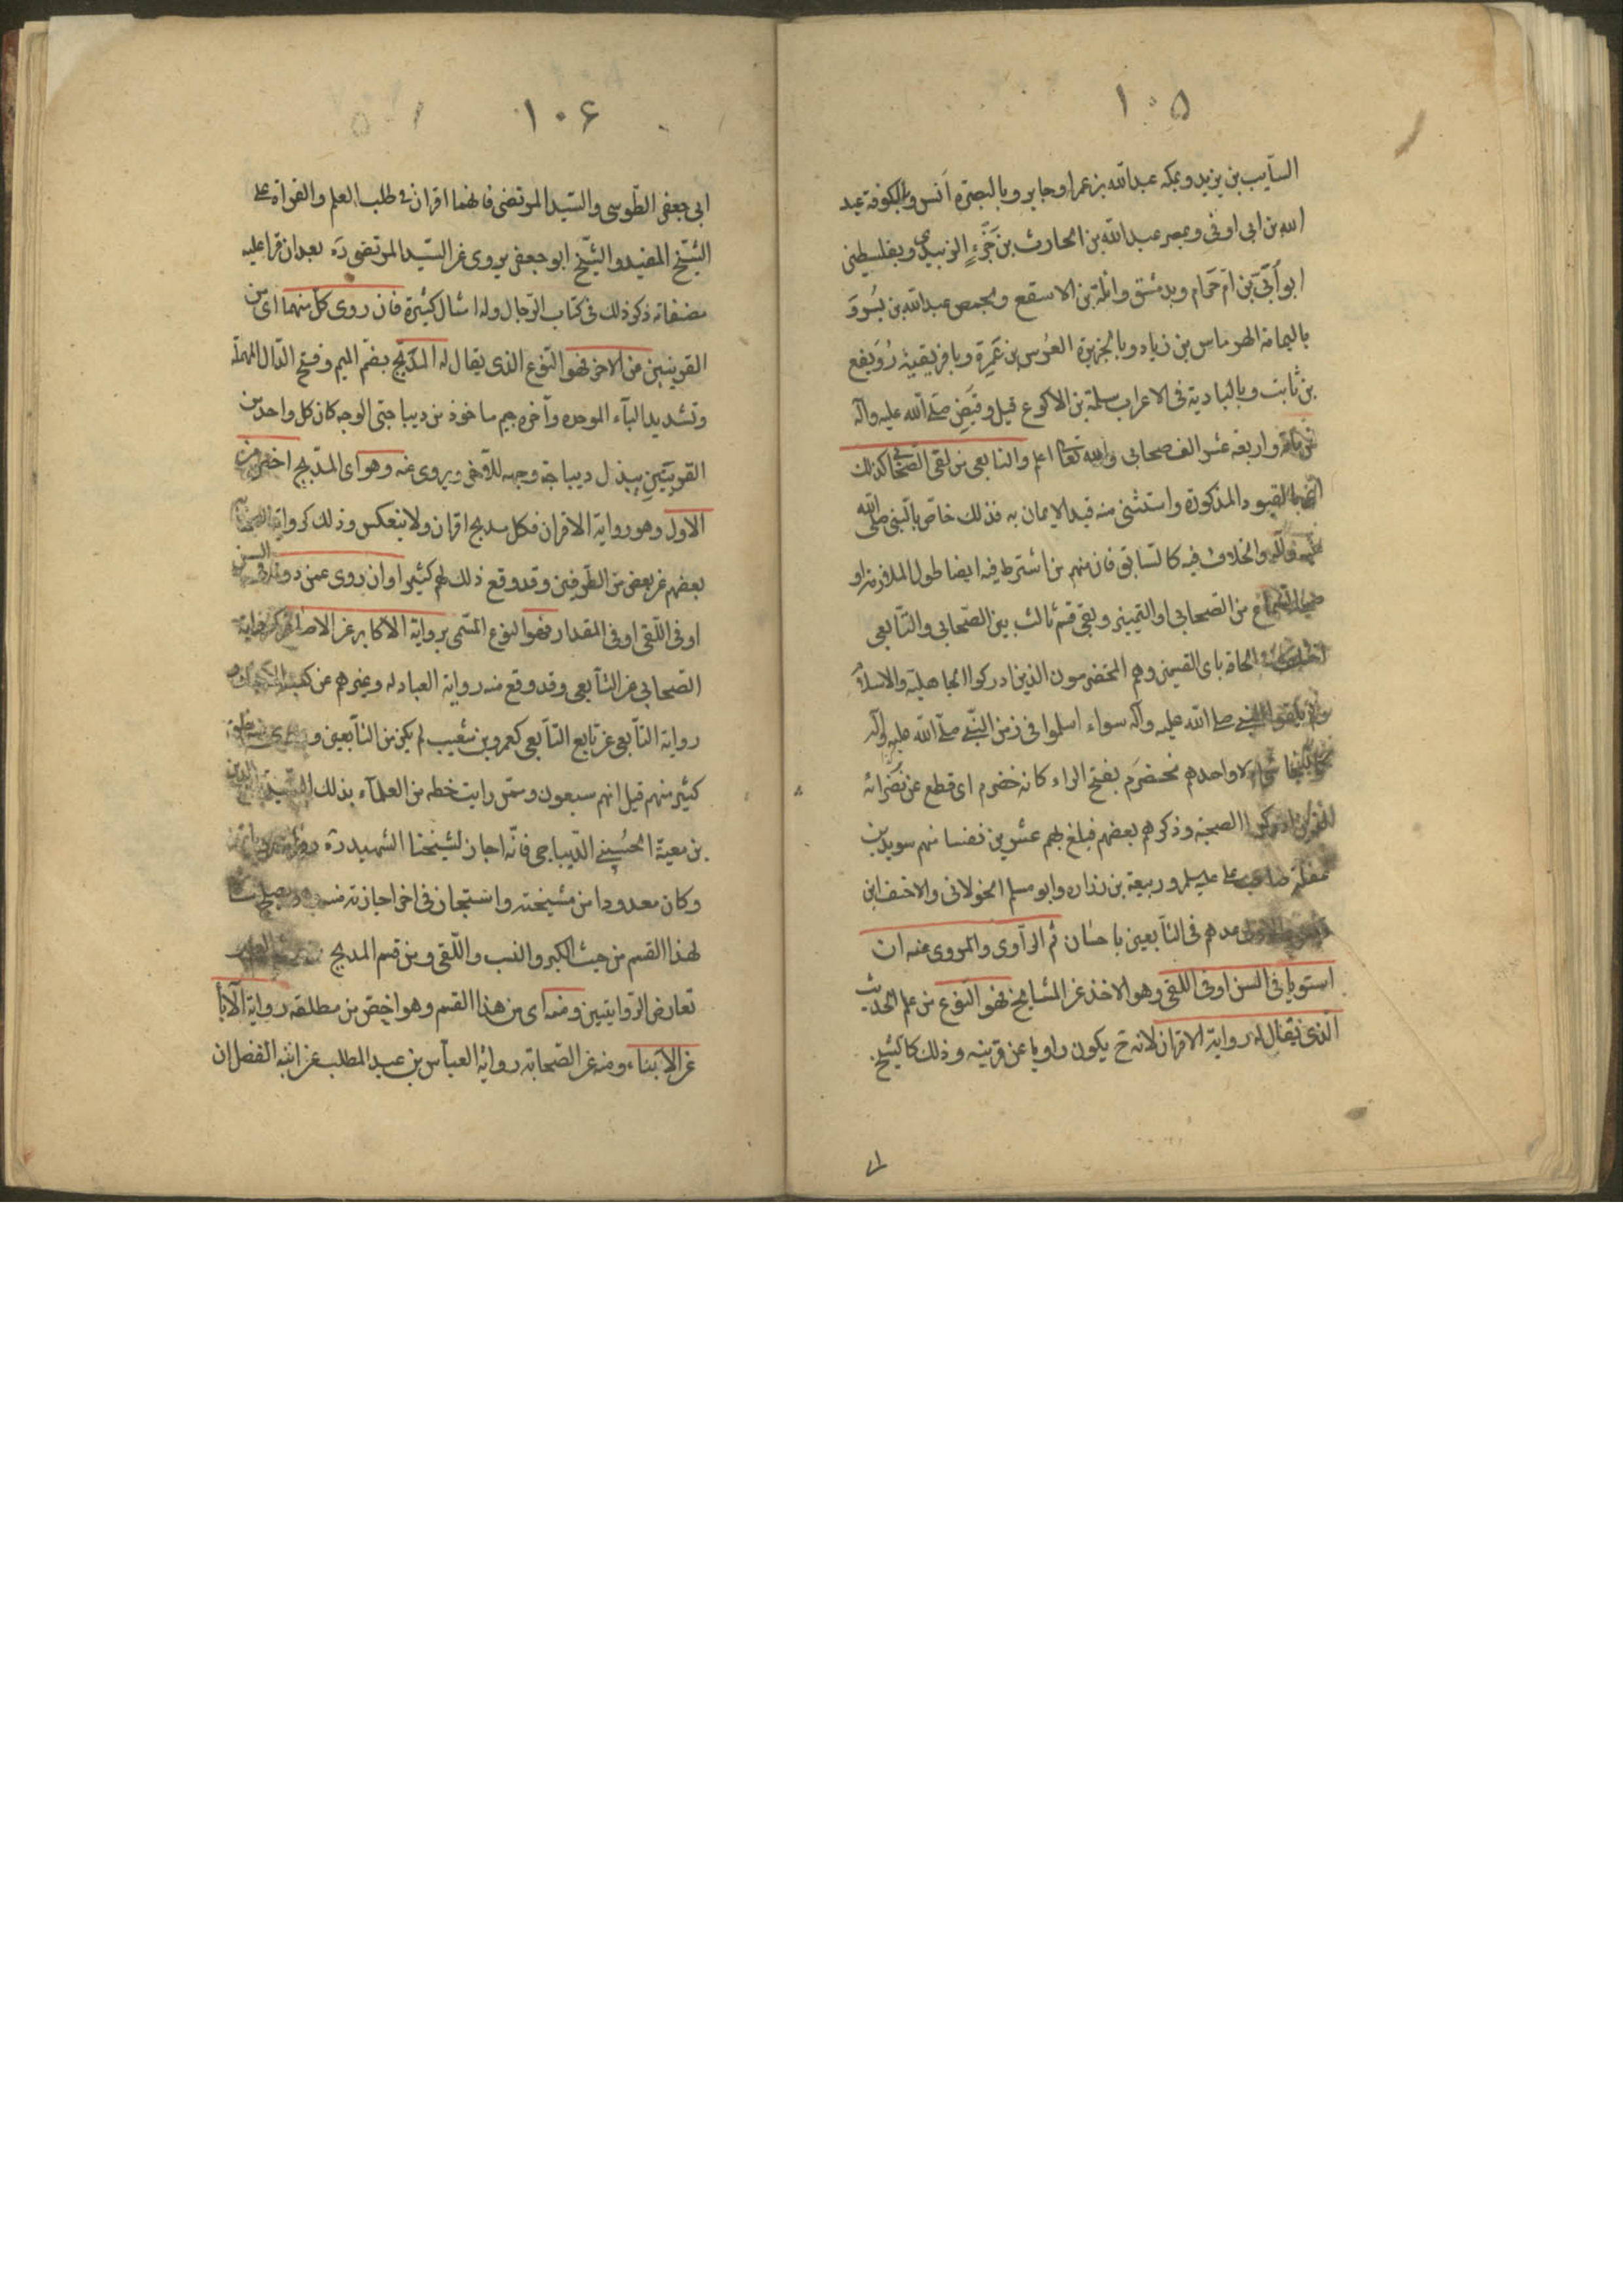 ١٠٥
السآيب بن يزيد وبمكه عبد الله بن عمر او جابر وبالبصرة أنس وبالكوفة عبد
الله بن ابى اوفى وبمصر عبد الله بن الحارث بن جَزْءٍ الزبيدى وبفلسطين
ابو اُبَىّ بن ام حَرام وبدمشق واثلة بن الاسقع وبحمص عبد الله بن بُسْر و
باليمامة الهرماس بن زياد وبالجزيرة العُرس بن عَمِيرة وبافريقية رُوَيفع
بن ثابت وبالبادية فى الاعراب سلمة بن الاكوع قيل وقُبِض صلى الله عليه وآله
عن مائة واربعة عشر الف صحابى والله تعالى اعلم والتابعى من لقى الصحابى كذلك
بالقيود المذكورة واستثنى منه قيد الايمان به فذلك خاصّ بالنبى صلى الله
عليه وآله والخلاف فيه كالسابق فان منهم من اشترط فيه ايضا طول الملازمة او
صحة السماع من الصحابى او التمييز وبقى قسم ثالث بين الصحابى والتابعى
اختلف فى الحاقه باى القسمين وهم المخضرمون الذين ادركوا الجاهلية والاسلام
ولم يلقوا النبى صلى الله عليه وآله سواء اسلموا فى زمن النبى صلى الله عليه وآله
كالنجاشى ام لا واحدهم مخضرَم بفتح الراء كانه خضرم اى قطع عن نُضَرائه
الذين ادركوا الصحبة وذكرهم بعضهم فبلغ بهم عشرين نفسا منهم سويد بن
غفلة صاحب على عليه السلم وربيعة بن زرارة وابو مسلم الخولانى والاحنف بن
قيس والاولى عدهم فى التابعين باحسان ثم الراوى والمروى عنه ان
استويا فى السن او فى اللقى وهو الاخذ عن المشايخ فهو النوع من علم الحديث
الذى يقال له رواية الاقران لانه ح يكون راويا عن قرينه وذلك كالشيخ
١٠۶
ابى جعفر الطوسى والسيد المرتضى فانهما اقران فى طلب العلم والقرآءة على
الشيخ المفيد والشيخ ابو جعفر يروى عن السيد المرتضى ره بعد ان قرا عليه
مصنفاته ذكر ذلك فى كتاب الرجال وله امثال كثيرة فان روى كل منهما اى من
القرينين عن الاخر فهو النوع الذى يقال له المدَبَّج بضم الميم وفتح الدال المهملة
وتشديد البآء الموحده وآخره جيم ماخوذ من ديباجتى الوجه كان كل واحد من
القرينين يبذل ديباجة وجهه للآخر ويروى عنه وهو اى المدبج اخص من
الاول وهو رواية الاقران فكل مدبج اقران ولا ينعكس وذلك كرواية الصحابة
بعضهم عن بعض من الطرفين وقد وقع ذلك لهم كثيرا وان روى عمن دونه فى السن
او فى اللقى او فى المقدار فهو النوع المسمى برواية الاكابر عن الاصاغر كرواية
الصحابى عن التابعى وقد وقع منه رواية العبادله وغيرهم عن كعب الاحبار و
رواية التابعى عن تابع التابعى كعمرو بن شعيب لم يكن من التابعين وروى عنه خلق
كثير منهم قيل انهم سبعون وممن رايت خطه من العلمآء بذلك السيد تاج الدين
بن معية الحُسينى الديباجى فانّه اجاز لشيخنا الشهيد ره
وكان معدودا من مشيخته واستجاز فى اخر اجازته منه
لهذا القسم من حيث الكبر والنسب واللقى ومن قسم المدبج
تعارض الروايتين ومنه اى من هذا القسم وهو اخص من مطلقه رواية الآبآء
عن الابناء ومنه عن الصحابة رواية العباس بن عبد المطلب عن ابنه الفضل ان